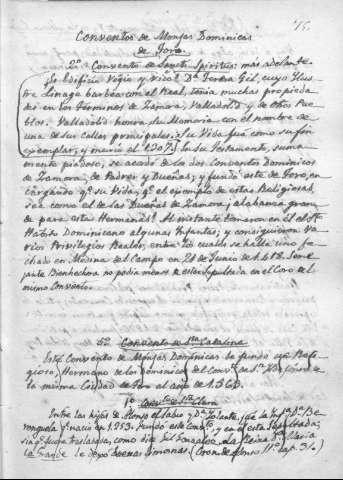 15.
Conventos de Monjas Dominicas
de Toro.
2º Convento de Sancti Spiritus: más adelante.
Lo Edificó Regio y rico Dª Teresa Gil, cuyo Ilus
tre linage con el Real, tenia muchas propieda
des en los terminos de Zamora, Valladolid y de otros Pue
blos. Valladolid honra su Memoria con el nombre de
una de sus calles principales. Su Vida fué como su fin
exemplar, y murió el 1307. En su Testamento, suma
mente piadoso, se acordó de los dos Conventos Dominicos
de Zamora, de Padres y Dueñas; y fundó este de Toro, en
cargando qe. su Vida, y el exemplo de estas Religiosas,
sea como el de las Dueñas de Zamora; alabanza gran
de para estas Hermanas! Al instante tomaron en él el Sto
Habito Dominicano algunas Infantas; y consiguieron va
rios Privilegios Reales, entre los cuales se halla uno fe
chado en Medina del Campo en 20 de Junio de Seme
jante Bienhechora no podia menos de estar sepultada en el Coro del
mismo Convento.
52 Convento de Sta Catalina
Este Convento de Monjas Dominicas le fundó un Reli
gioso, Hermano de los Dominicos del Convto de Sn
la misma Ciudad de Toro el año de
1º Convto de Sta Clara
Entre las hijas de Alonso el Sabio y Dª Violante, fué la Infta Dª Be
renguela qe. nació en 1253. Fundó este Convto, y en él está sepultada;
sin qe. fuese traslarada, como dice Gil Gonzalez. La Reina Dª María
la Grande le dejó buenas limosnas. (Cron. de Alonso 11º cap. 31.)